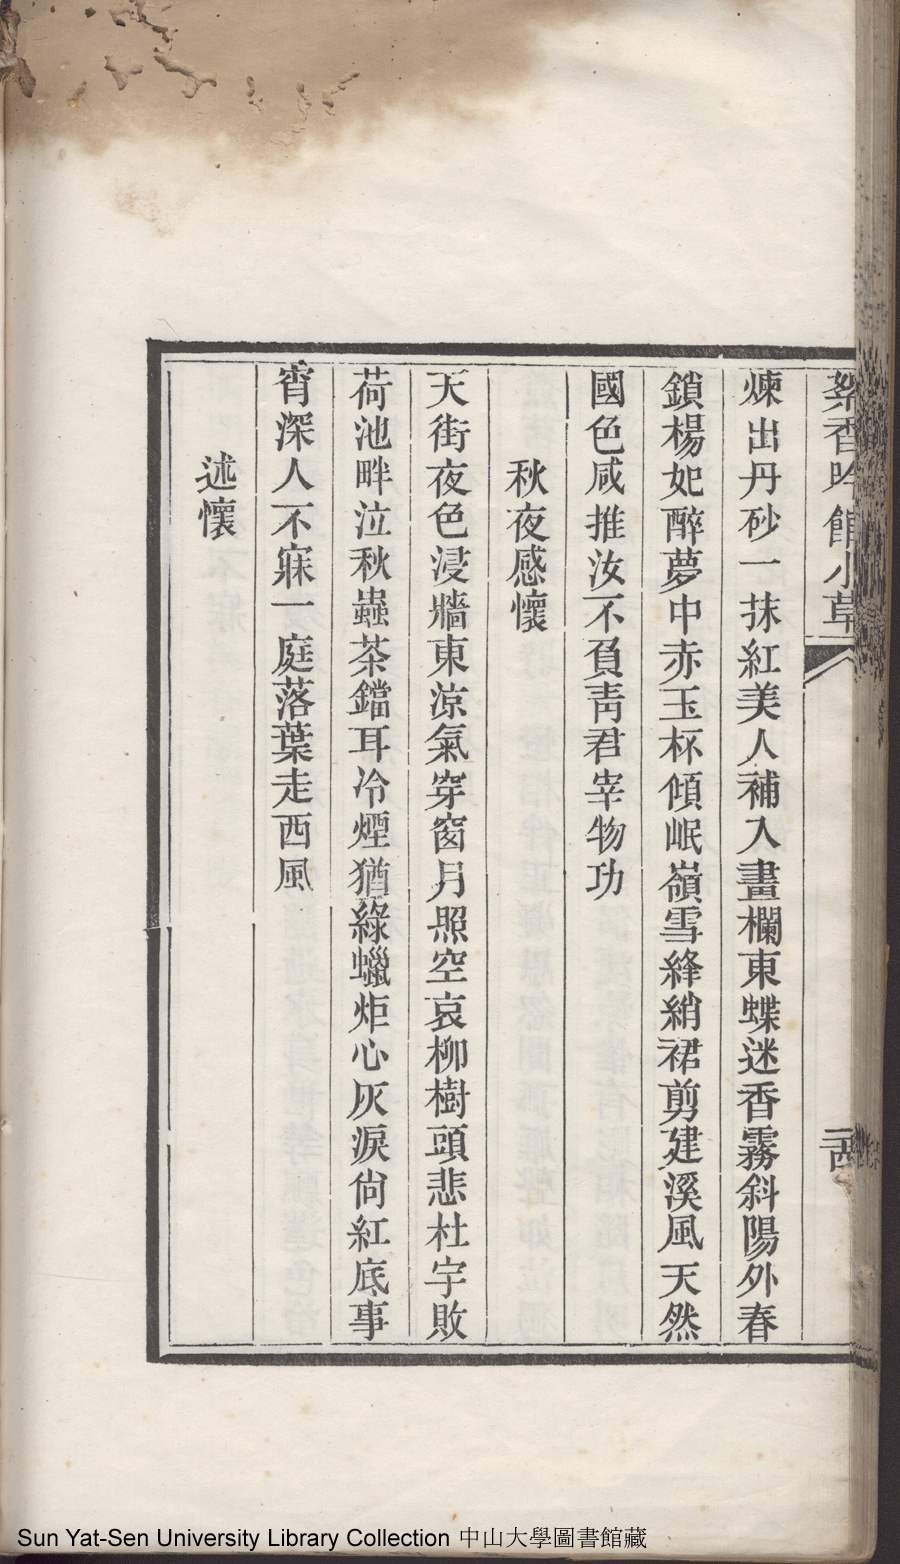 絮香吟館小草
煉出丹砂一抹紅美人補入畫欄東蝶迷香霧斜陽外春
鎖楊妃醉夢中赤玉杯傾岷嶺雪絳綃裙剪建溪風天然
國色咸推汝不負靑君宰物功
秋夜感懷
天街夜色浸牆東涼氣穿窗月照空哀柳樹頭悲杜宇敗
荷池畔泣秋蟲茶鐺耳冷煙猶綠蠟炬心灰淚尙紅底事
宵深人不寐一庭落葉走西風
述懷
Sun Yat-Sen University Library Collection 中山大學圖書館藏